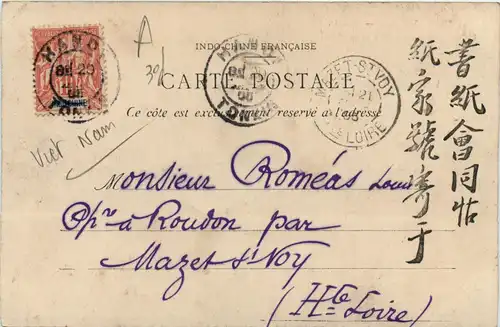 INDO-CHINE FRANÇAISE
CARTE POSTALE
Ce côté est exclusivement reservé à l'adresse
A
30/
Viet Nam
HANOI
29
TONKIN
HANOI
TONKIN
MAZET-ST VOY
21
Hte LOIRE
Monsieur Roméas Louis
à Roudon par
Mazet St Voy
(Hte Loire)
書紙會同帖
紙家號寄于